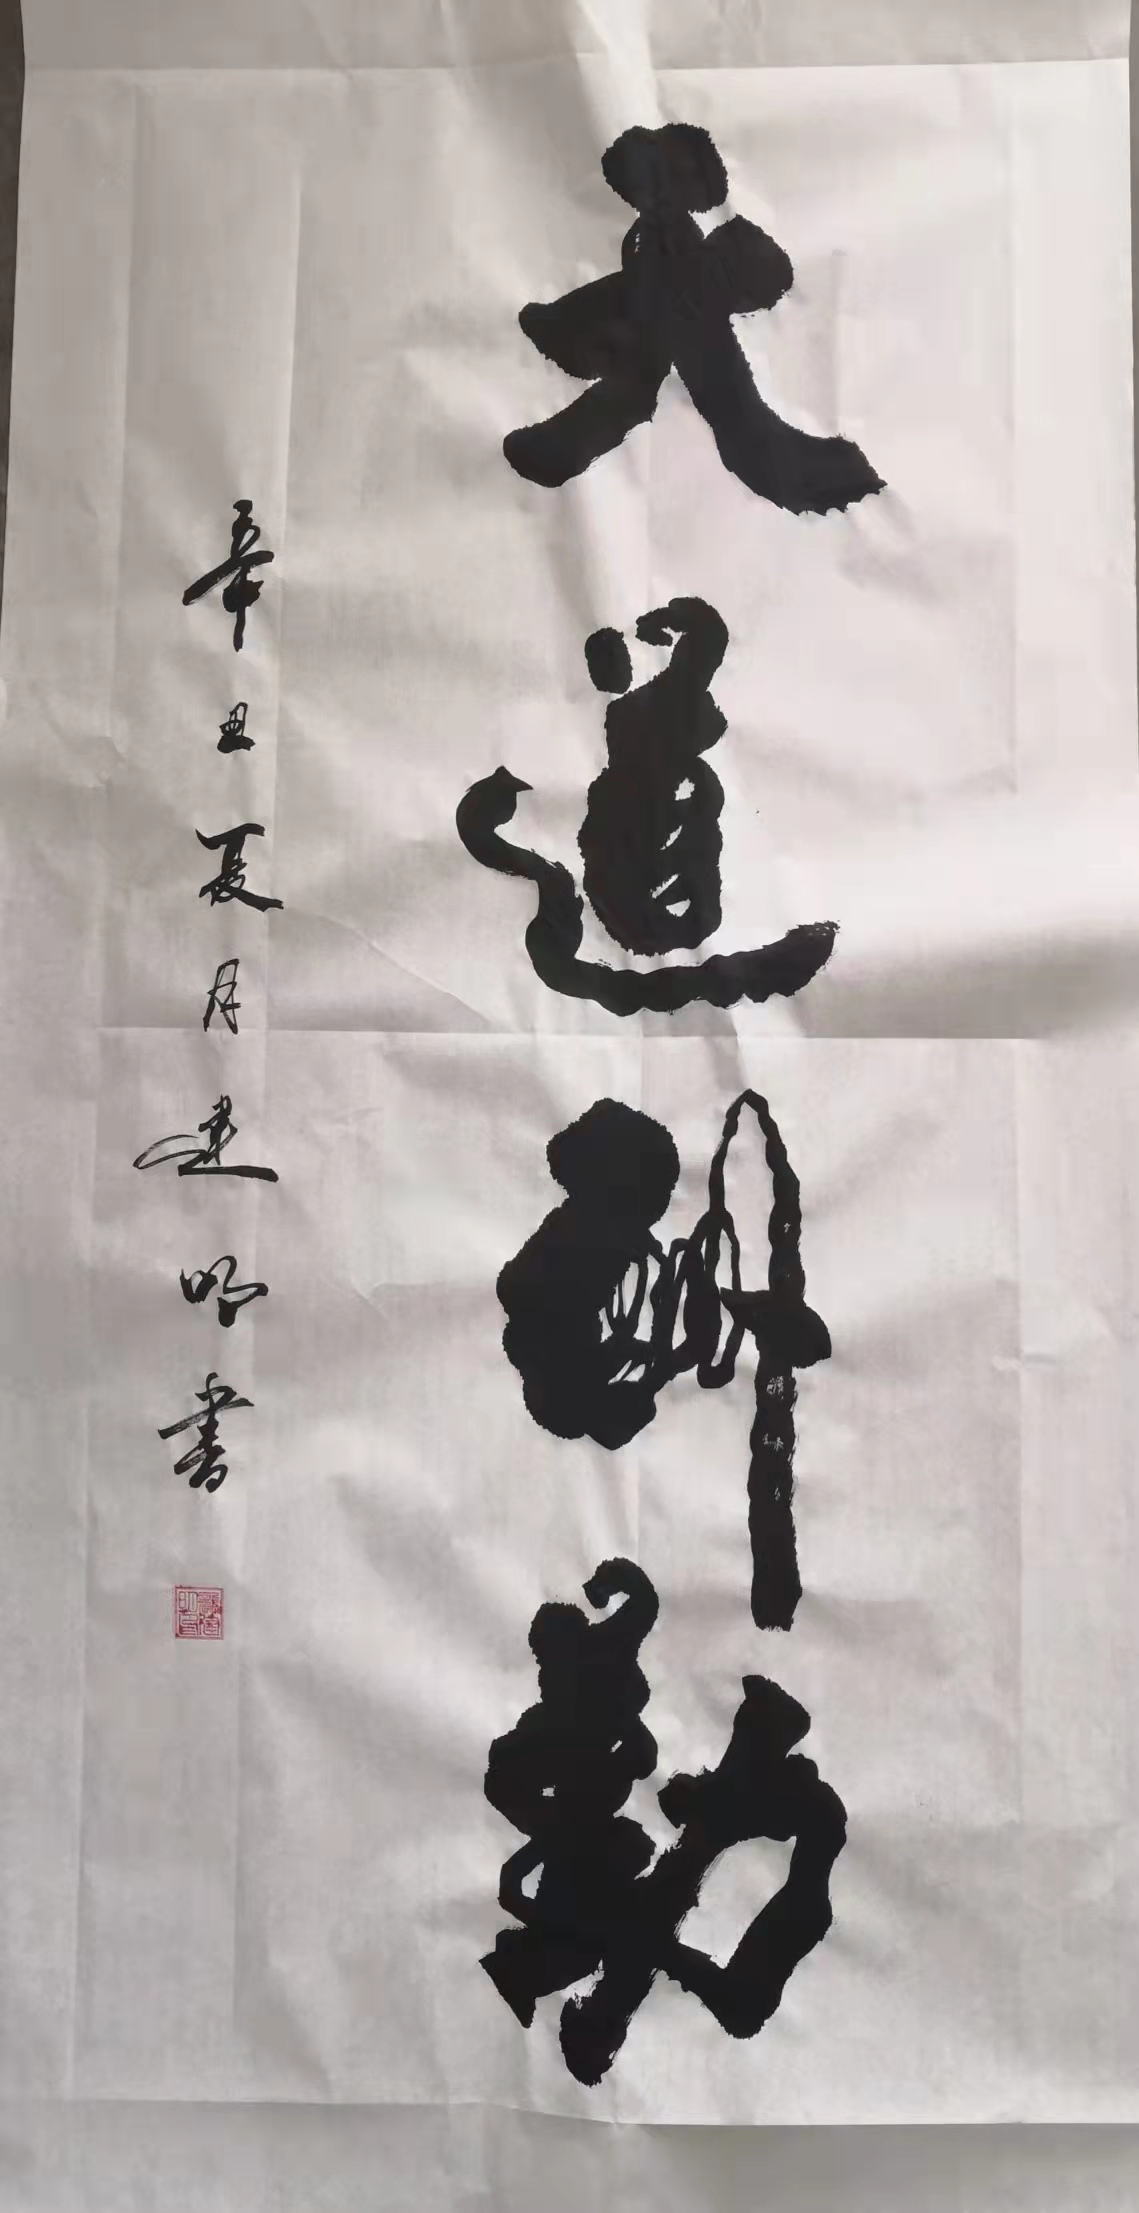 天道酬勤
辛丑夏月建明書